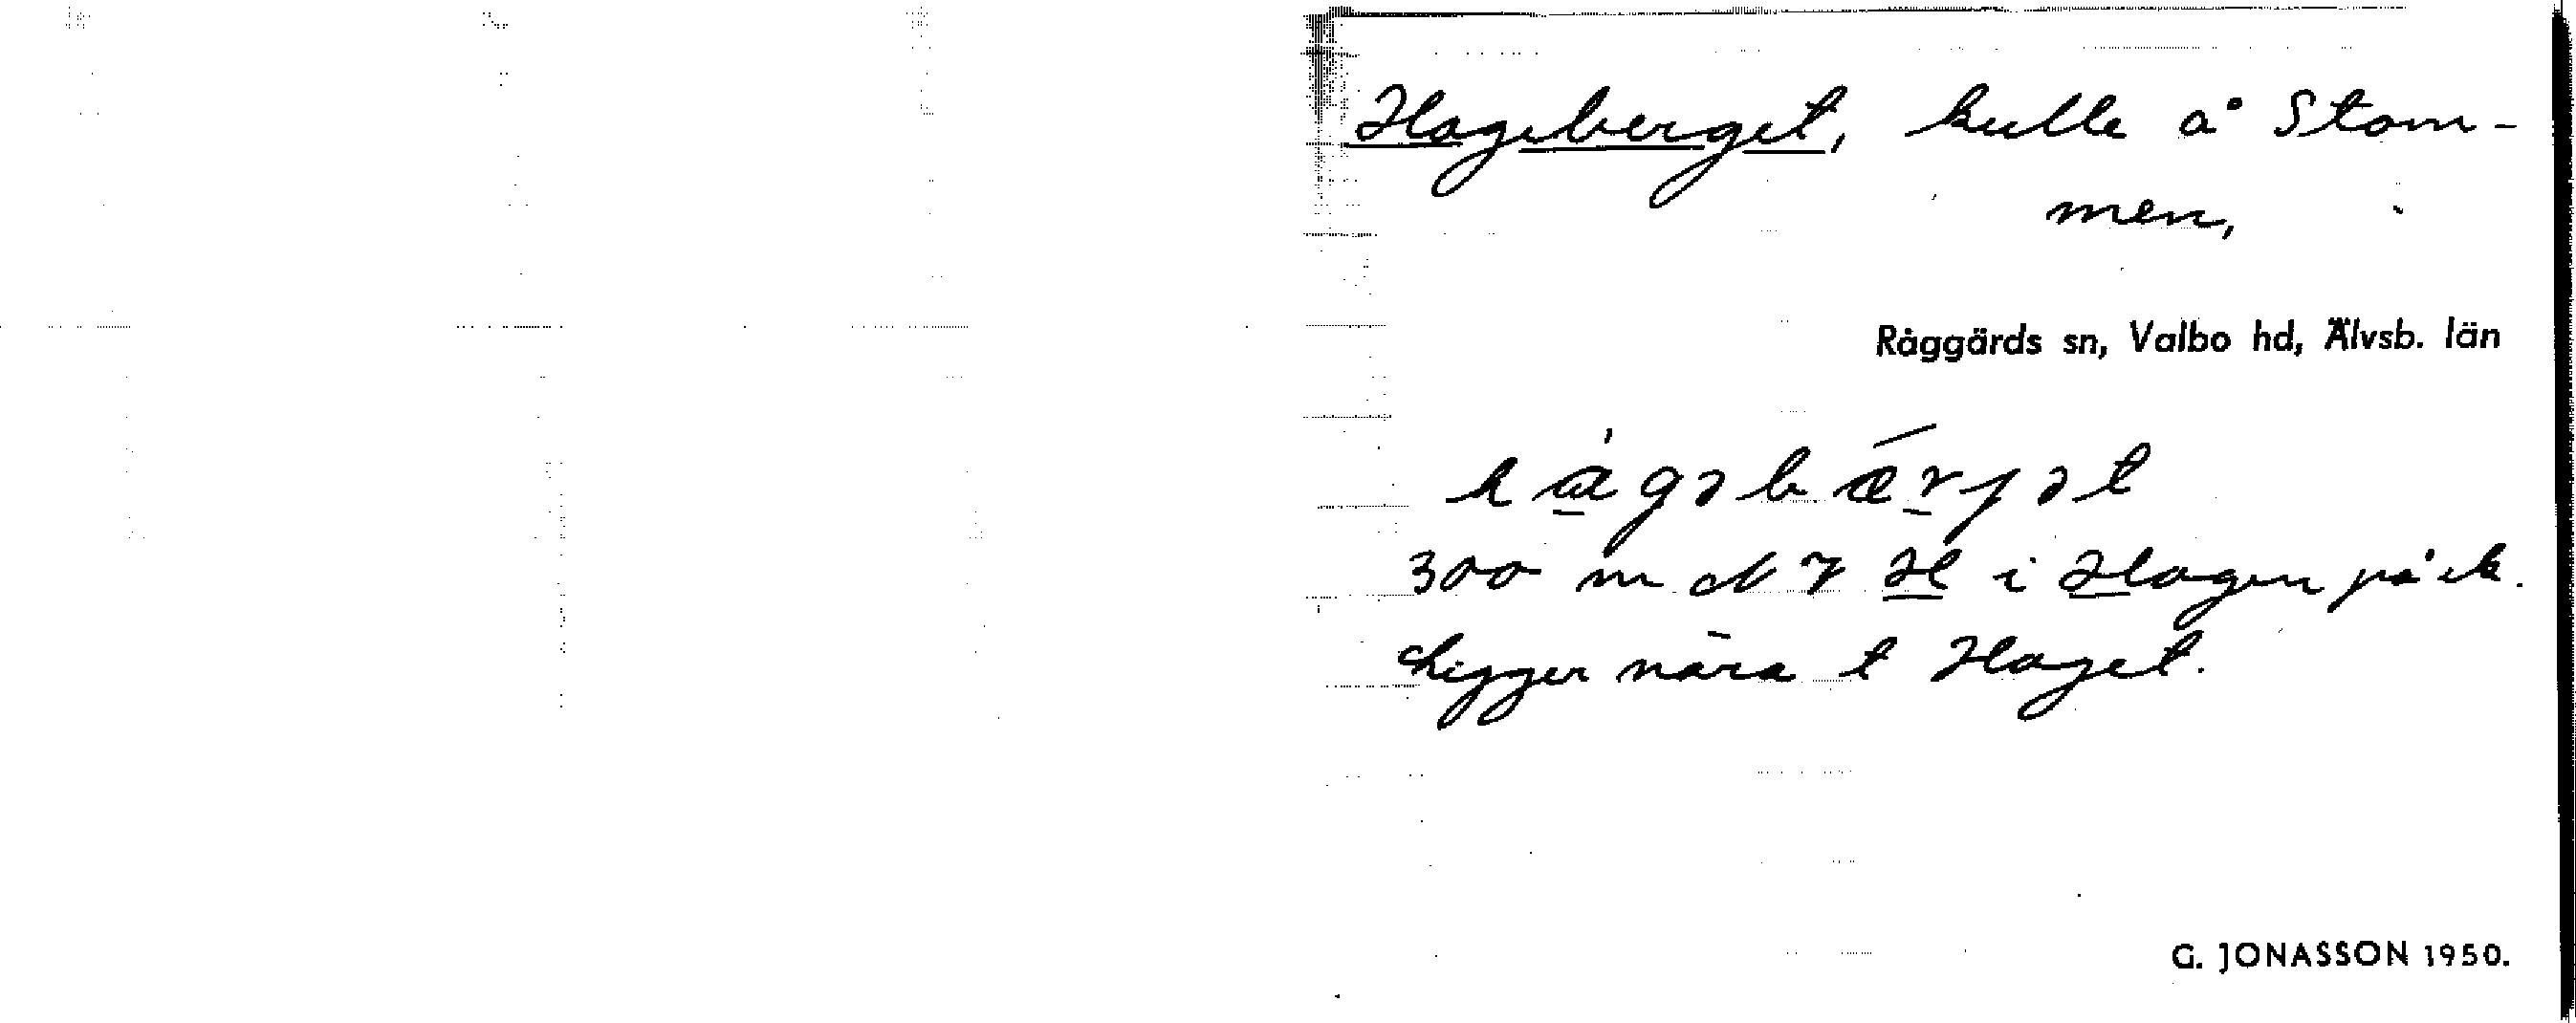 Hageberget, kulle å Stom-
men,
Råggärds sn, Valbo hd, Älvsb. län
hàgəbǽrjət
300 m N H i Hagen på ek.
Ligger nära t Haget.
G. JONASSON 1950.